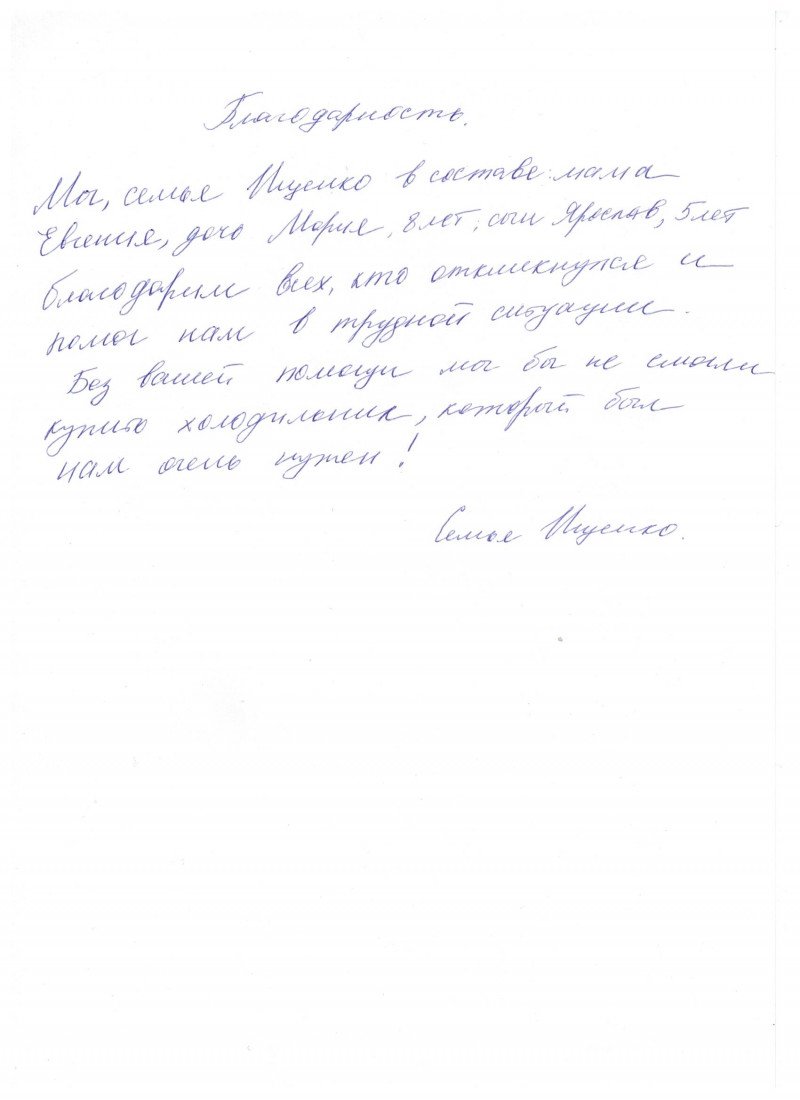 Благодарность.
Мы, семья Ищенко в составе: мама
Евгения, дочь Мария, 8 лет, сын Ярослав, 5 лет
благодарим всех, кто откликнулся и
помог нам в трудной ситуации.
Без вашей помощи мы бы не смогли
купить холодильник, который был
нам очень нужен!
Семья Ищенко.